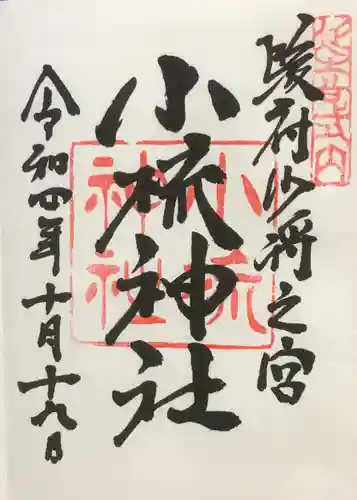 駿府少将之宮
小梳神社
令和四年十月十九日
小梳
神社